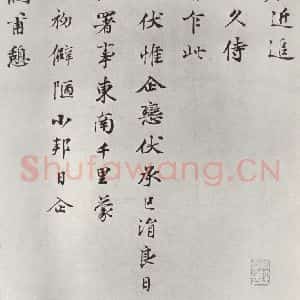 近進
久侍
乍此
伏惟企戀伏承已涓良日
署事東南千里蒙
初僻陋小邦日企
甫憩
Shufawang.CN